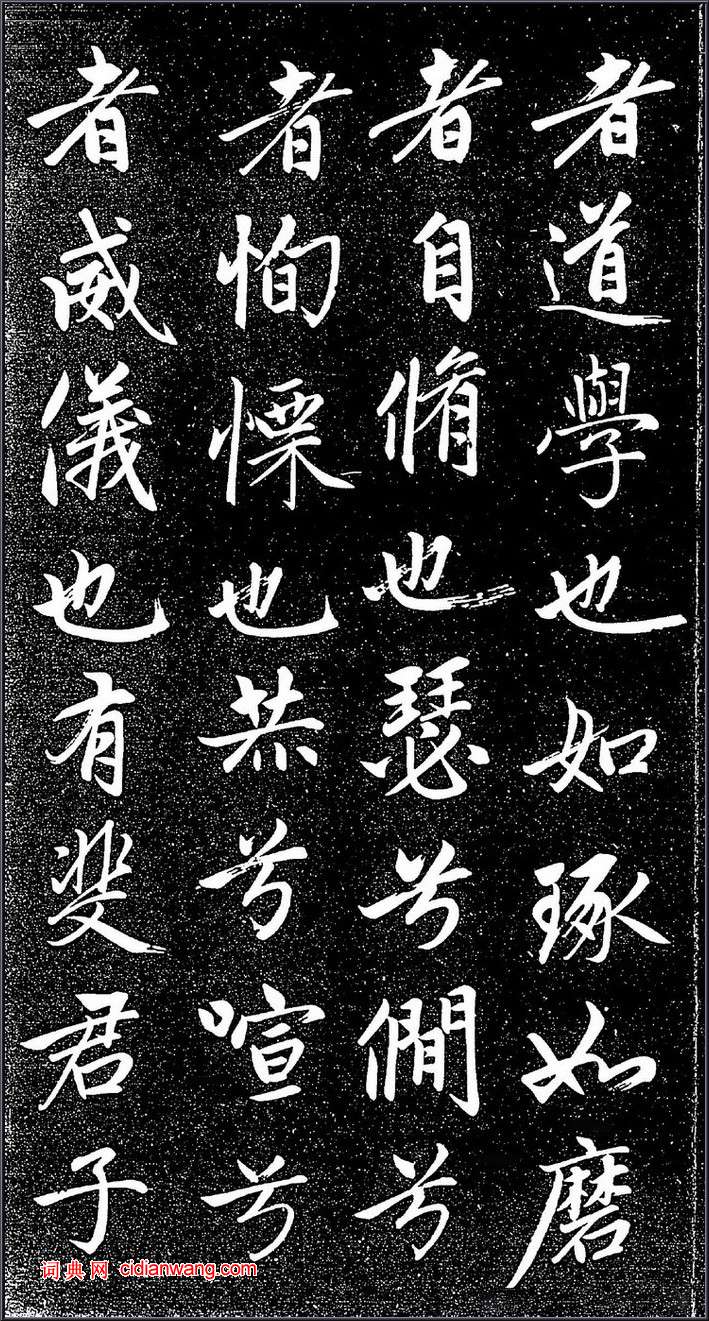 者道學也如琢如磨
者自脩也瑟兮僩兮
者恂慄也赫兮喧兮
者威儀也有斐君子
词典网 cidianwang.com